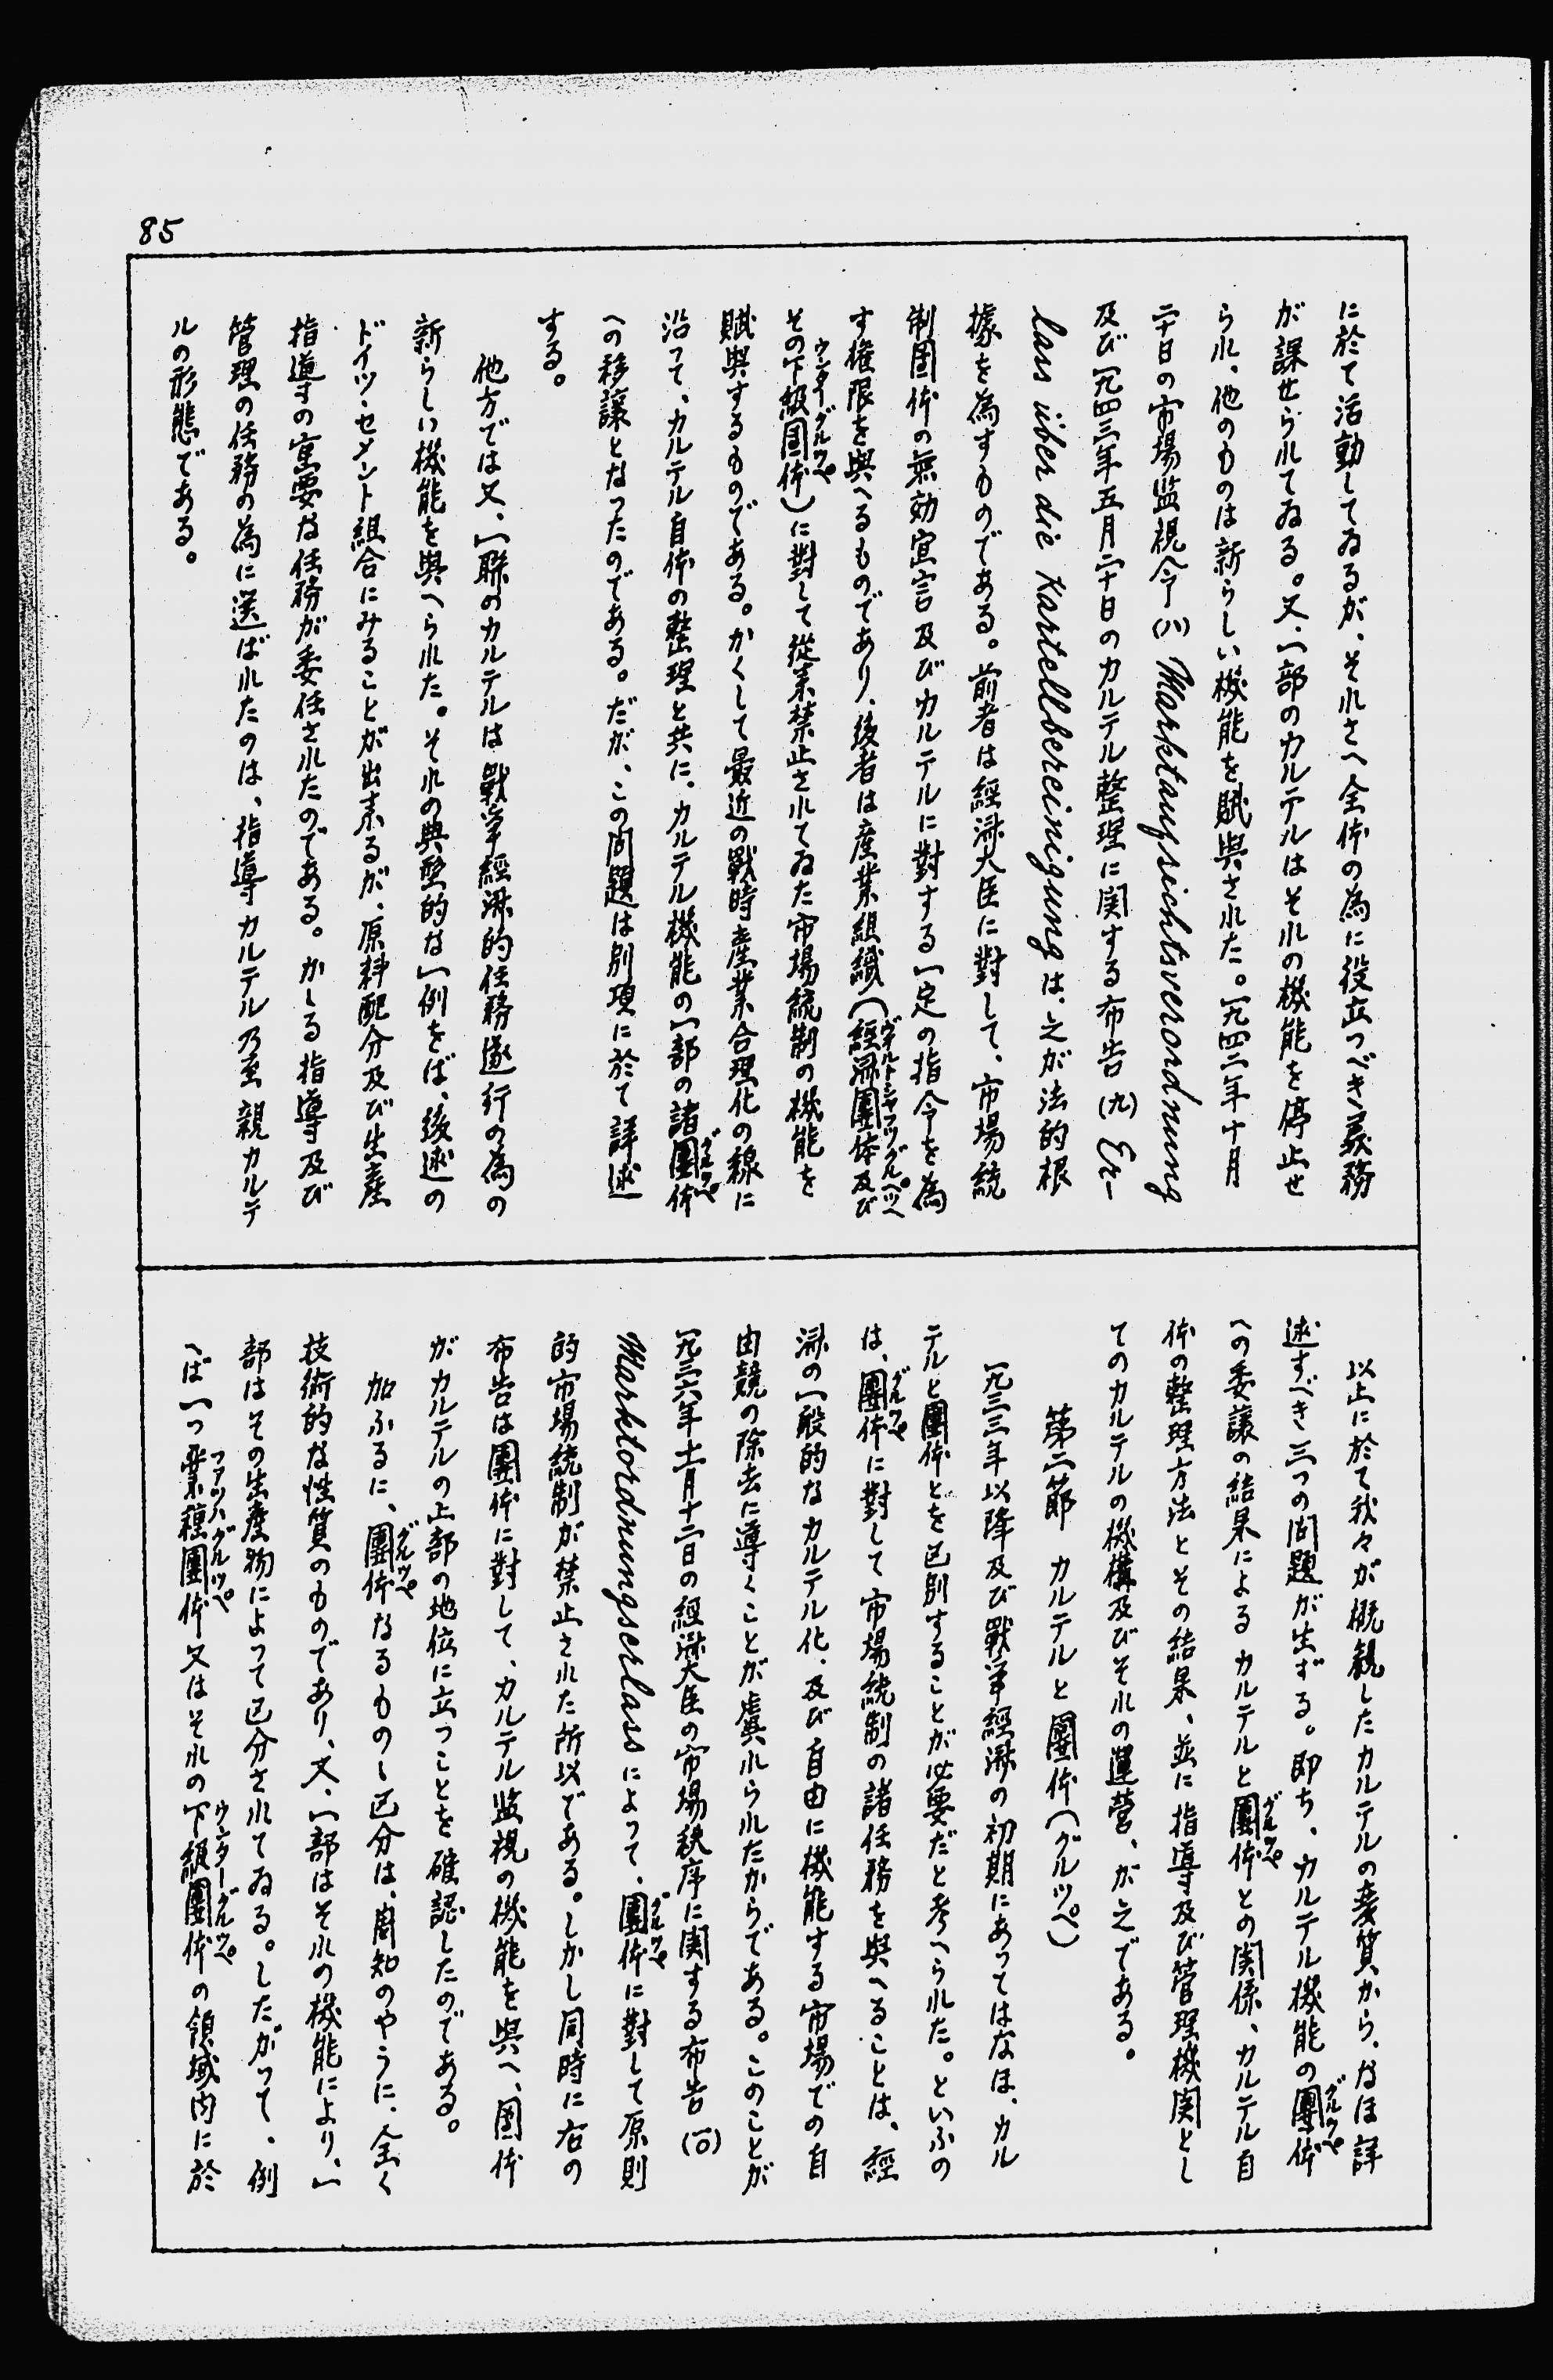 85
に於て活動してゐるが、それさへ全体の為に役立つべき義務
が課せられてゐる。又、一部のカルテルはそれの機能を停止せ
られ、他のものは新らしい機能を賦與された。一九四二年十月
二十日の市場監視令(八) Marktaufsichtsverordnung
及び一九四三年五月二十日のカルテル整理に関する布告(九) Er-
lass über die Kartellbereinigung は、之が法的根
據を為すものである。前者は經済大臣に對して、市場統
制團体の無効宣言及びカルテルに對する一定の指令を為
す権限を與へるものであり、後者は産業組織(經済團体及び
その下級團体)に對して從来禁止されてゐた市場統制の機能を
賦與するものである。かくして最近の戰時産業合理化の線に
沿つて、カルテル自体の整理と共に、カルテル機能の一部の諸團体
への移譲となつたのである。だが、この問題は別項に於て詳述
する。
他方では又、一聯のカルテルは戰爭經済的任務遂行の為の
新らしい機能を與へられた。それの典型的な一例をば、後述の
ドイツ・セメント組合にみることが出来るが、原料配分及び生産
指導の重要な任務が委任されたのである。かゝる指導及び
管理の任務の為に選ばれたのは、指導カルテル乃至親カルテ
ルの形態である。
以上に於て我々が概観したカルテルの変質から、なほ詳
述すべき三つの問題が生ずる。即ち、カルテル機能の團体
への委譲の結果によるカルテルと團体との関係、カルテル自
体の整理方法とその結果、並に指導及び管理機関とし
てのカルテルの機構及びそれの運営、が之である。
第二節 カルテルと團体(グルッペ)
一九三三年以降及び戰爭經済の初期にあつてはなほ、カル
テルと團体とを区別することが必要だと考へられた。といふの
は、團体に對して市場統制の諸任務を與へることは、經
済の一般的なカルテル化、及び自由に機能する市場での自
由競の除去に導くことが虞れられたからである。このことが
一九三六年十一月十二日の經済大臣の市場秩序に関する布告(一〇)
Marktordnungserlass によつて、團体に對して原則
的市場統制が禁止された所以である。しかし同時に右の
布告は團体に對して、カルテル監視の機能を與へ、團体
がカルテルの上部の地位に立つことを確認したのである。
加ふるに、團体なるものゝ区分は、周知のやうに、全く
技術的な性質のものであり、又、一部はそれの機能により、一
部はその生産物によつて区分されてゐる。したがつて、例
へば一つ業種團体又はそれの下級團体の領域内に於